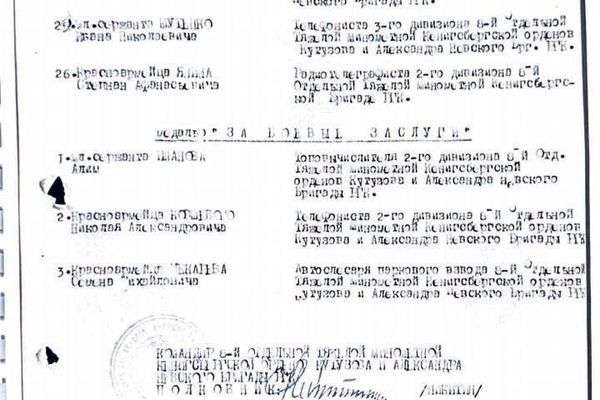 Невского Бригады РГК.
мл.сержанта ШУТЕНКО Телефониста 3-го дивизиона 8-й Отдельной
Ивана Николаевича Тяжелой минометной Кенигсбергской орденов
Кутузова и Александра Невского Бриг. РГК.
26.Красноармейца Радиотелеграфиста 2-го дивизиона 8-й
Степана Афанасьевича Отдельной Тяжелой минометной Кенигсбергс-
кой Бригады РГК.
медалью "ЗА БОЕВЫЕ ЗАСЛУГИ"
1.мл.сержанта Топовычислителя 2-го дивизиона 8-й Отд.
Алим Тяжелой минометной Кенигсбергской
орденов Кутузова и Александра Невского
Бригады РГК.
2.Красноармейца Телефониста 2-го дивизиона 8-й Отдельной
Николая Александровича Тяжелой минометной Кенигсбергской орденов
Кутузова и Александра Невского Бригады РГК
3.Красноармейца Автослесаря паркового взвода 8-й Отдельной
Семена Михайловича Тяжелой минометной Кенигсбергской орденов
Кутузова и Александра Невского Бригады РГК
КОМАНДИР 8-й ОТДЕЛЬНОЙ ТЯЖЕЛОЙ МИНОМЕТНОЙ
КЕНИГСБЕРГСКОЙ ОРДЕНОВ КУТУЗОВА И АЛЕКСАНДРА
НЕВСКОГО БРИГАДЫ РГК
ПОЛКОВНИК /НИКИТИН/